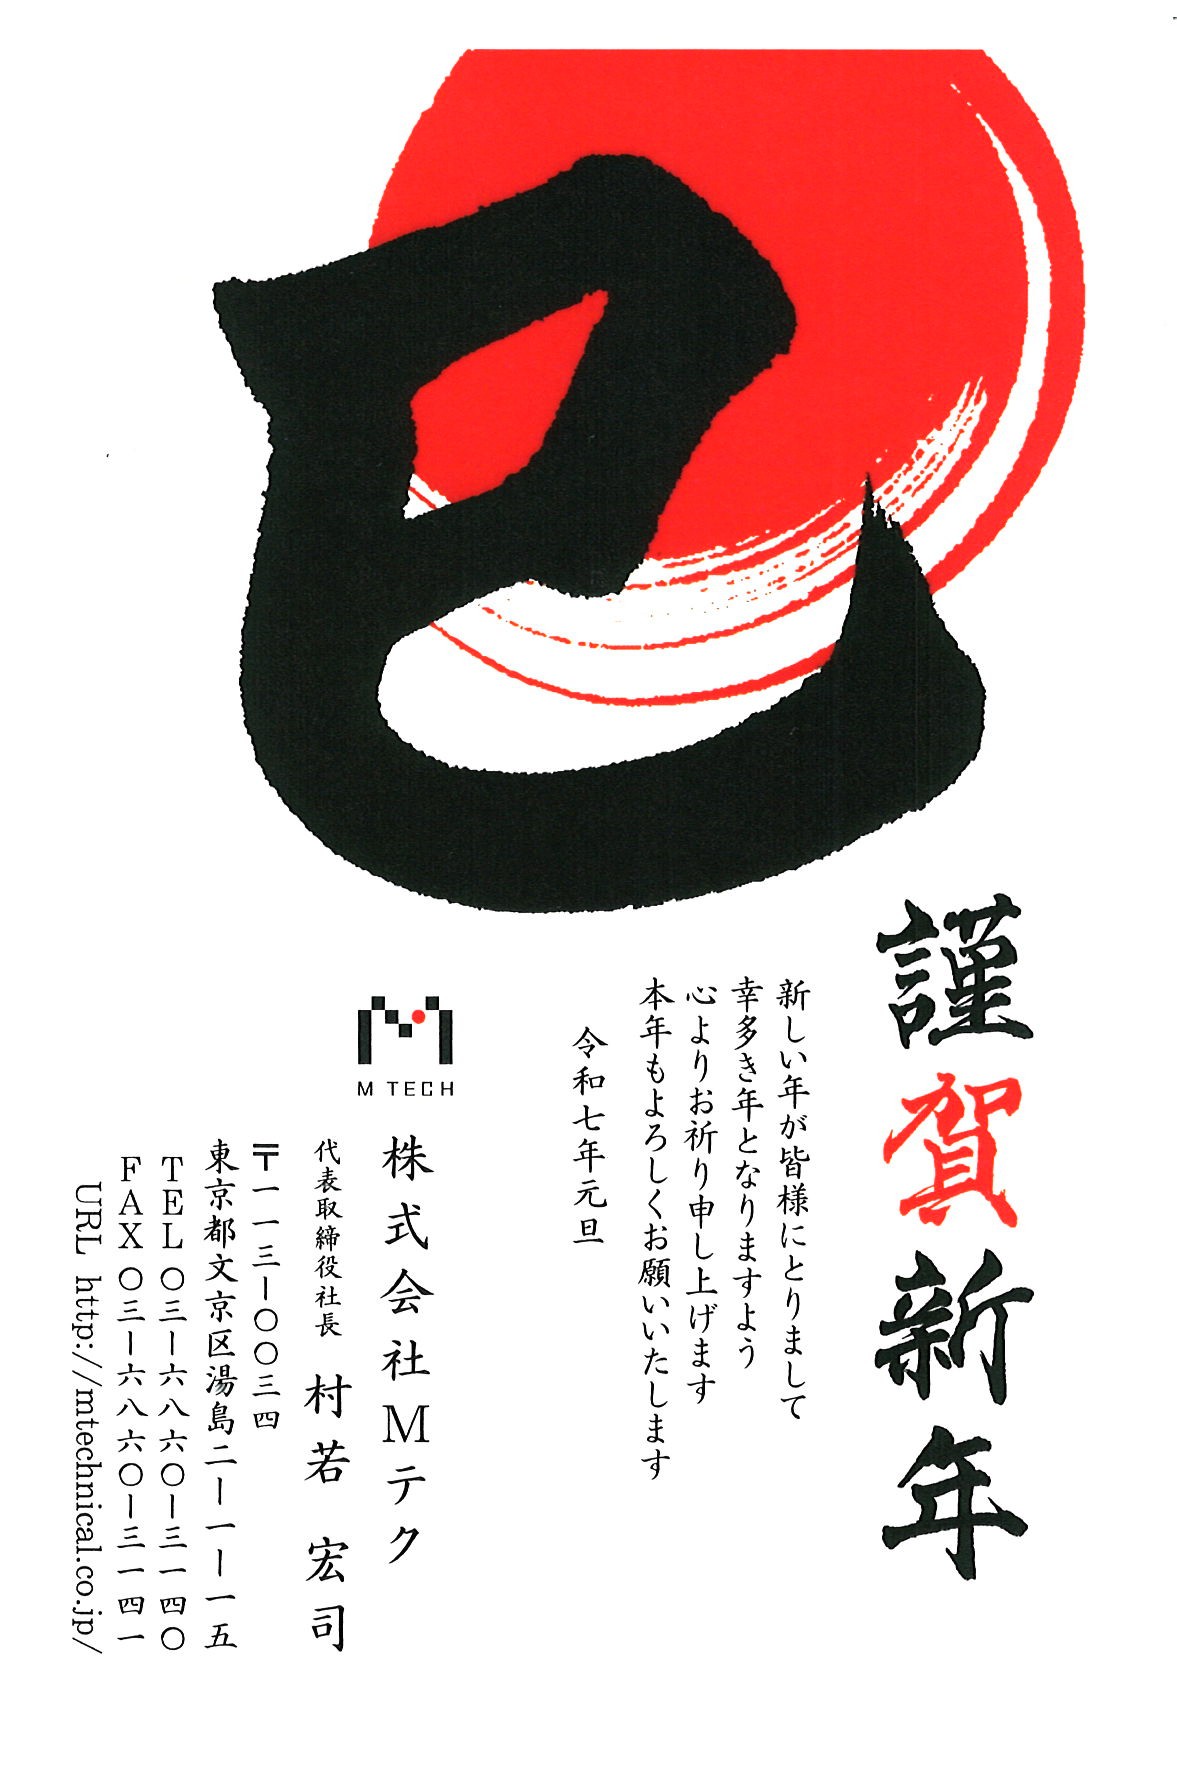 巳
謹賀新年
新しい年が皆様にとりまして
幸多き年となりますよう
心よりお祈り申し上げます
本年もよろしくお願いいたします
令和七年元旦
M TECH
株式会社Mテク
代表取締役社長 村若 宏司
〒一一三ー〇〇三四
東京都文京区湯島二ー一ー一五
TEL〇三ー六八六〇ー三一四〇
FAX〇三ー六八六〇ー三一四一
URL http://mtechnical.co.jp/